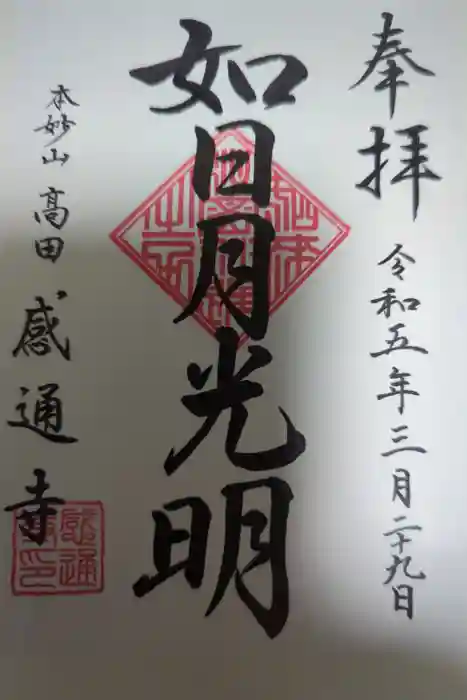 奉拝
令和五年三月二十九日
如日月光明
本妙山 高田 感通寺
感通寺印